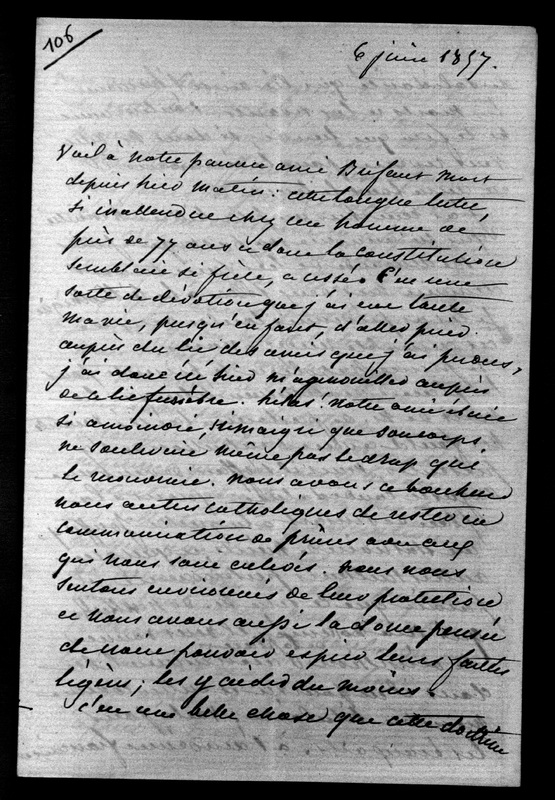 106
6 juin 1857.
Voilà notre pauvre ami Brifaut mort
depuis hier matin : cette longue lutte,
si inattendue chez un homme de
près de 77 ans et dont la constitution
semblait si frêle, a cessé. C'est une
sorte de dévotion que j'ai eue toute
ma vie, presqu'enfant, d'aller prier
auprès du lit des amis que j'ai perdus,
j'ai donc été hier m'agenouiller auprès
de ce lit funèbre. hélas ! notre ami était
si amoindri, si maigri que son corps
ne soulevait même pas le drap qui
le recouvrait. nous avons ce bonheur
nous autres catholiques de rester en
communication de prières avec ceux
qui nous sont enlevés. nous nous
sentons environnés de leur protection
et nous avons aussi la douce pensée
de croire pouvoir expier leurs fautes
légères ; les y aider du moins.
c'est une belle chose que cette doctrine